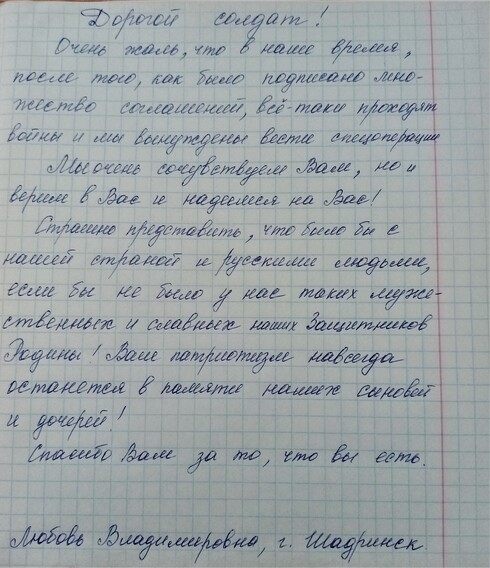 Дорогой солдат!
Очень жаль, что в наше время,
после того, как было подписано мно-
жество соглашений, всё-таки проходят
войны и мы вынуждены вести спецоперации
Мы очень сочувствуем Вам, но и
верим в Вас и надеемся на Вас!
Страшно представить, что было бы с
нашей страной и русскими людьми,
если бы не было у нас таких муже-
ственных и славных наших Защитников
Родины! Ваш патриотизм навсегда
останется в памяти наших сыновей
и дочерей!
Спасибо Вам за то, что вы есть.
Любовь Владимировна, г. Шадринск